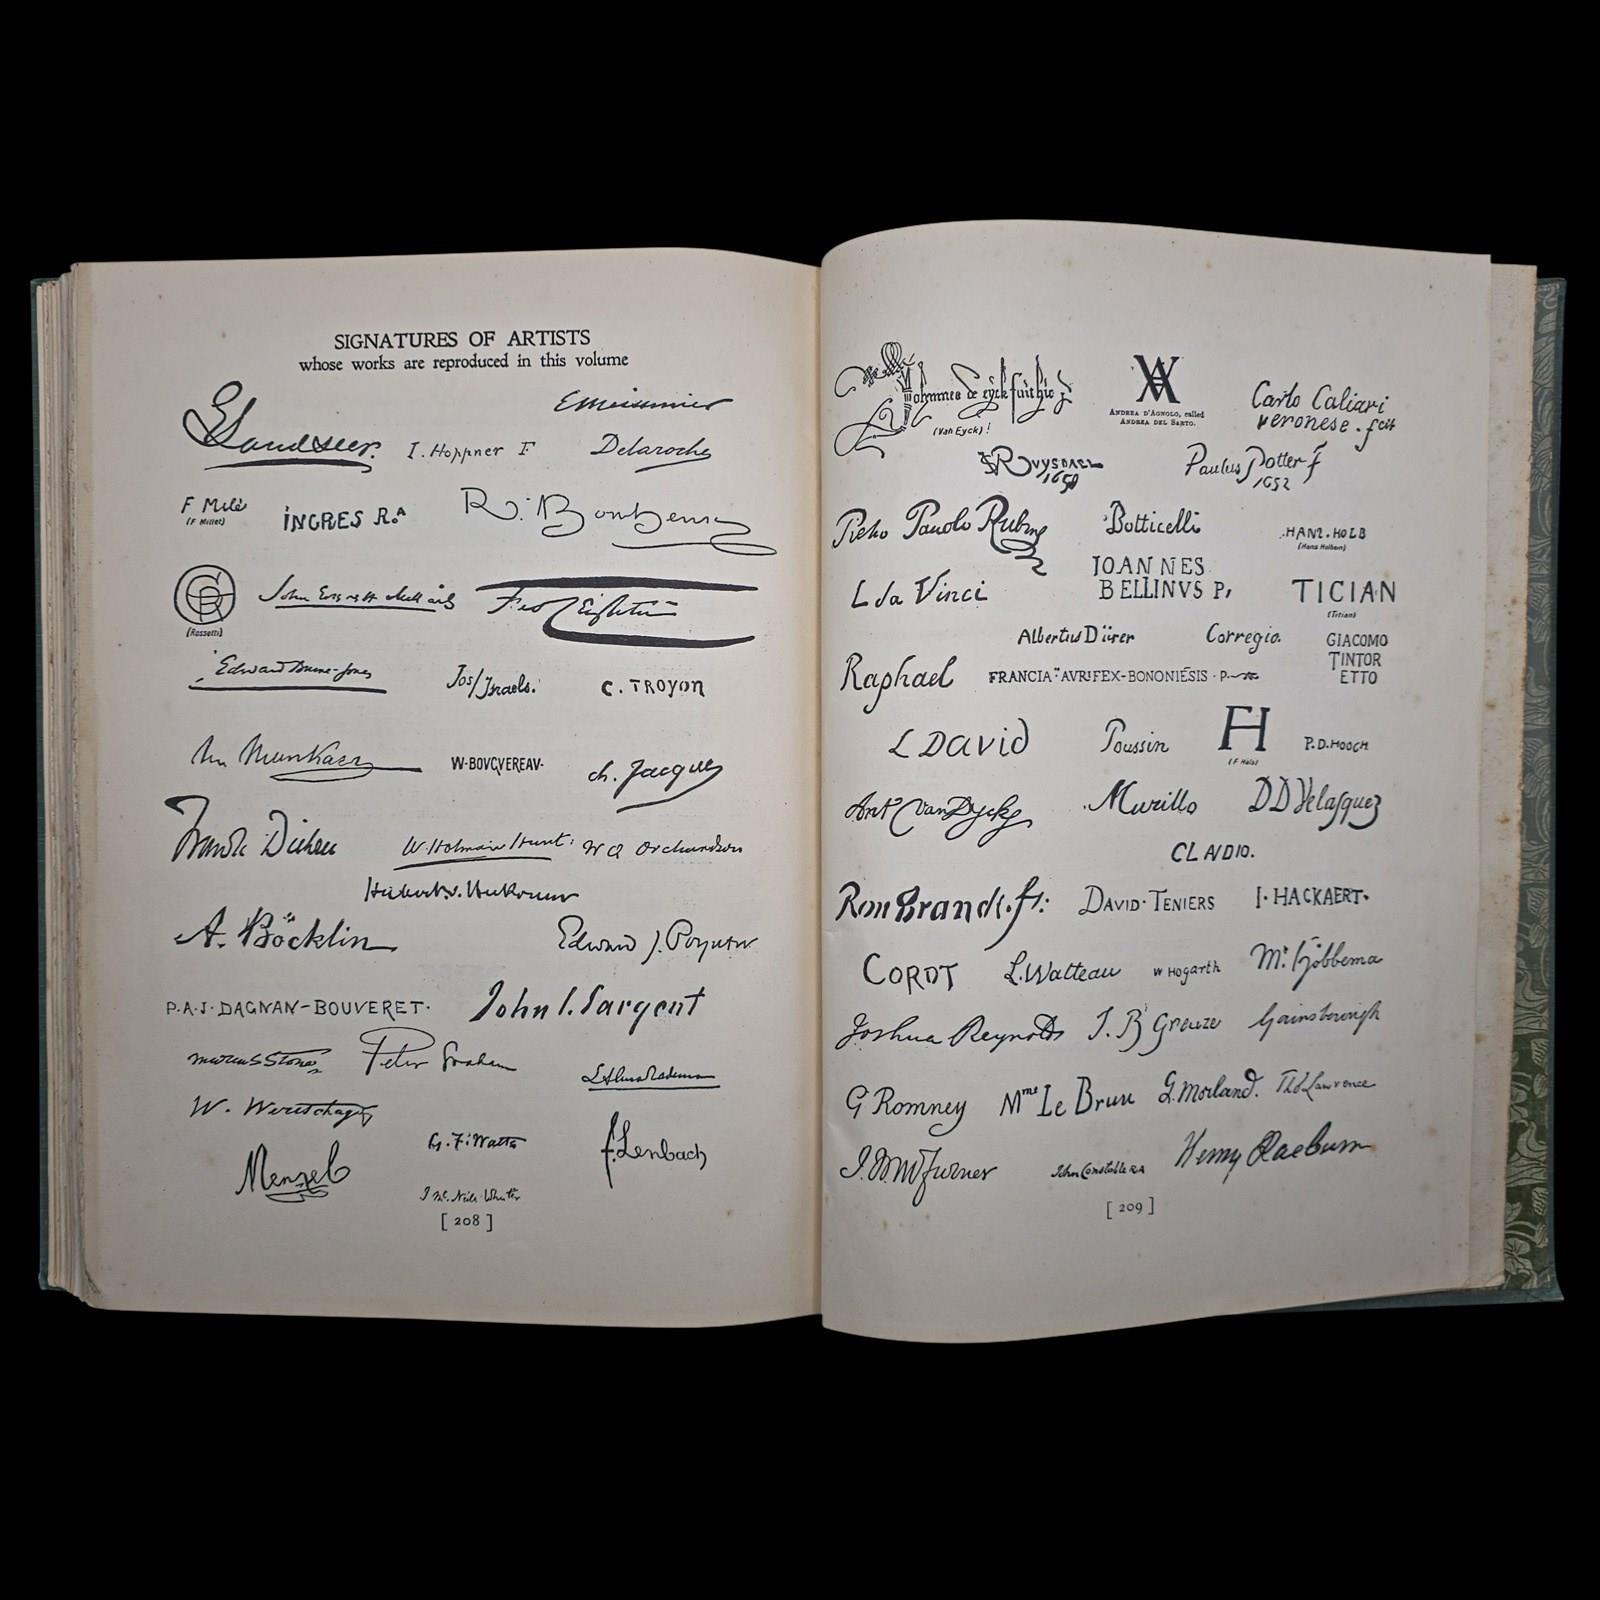 SIGNATURES OF ARTISTS
whose works are reproduced in this volume
EMeissonier
ELandseer.
I. Hoppner F
Delaroche
F Milé
(F Millet)
INGRES R.A
R. Bonheur
(Rossetti)
John Everett Millais
Fred Leighton
Edward Burne-Jones
Jos/Israels.
C. TROYON
W-BOVGVEREAV-
ch. Jacque
Frank Dicksee
W. Holman Hunt:
W Q Orchardson
A. Böcklin
Edward J. Poynter
P.A.J. DAGNAN-BOUVERET.
John S. Sargent
marcus Stone
Peter Graham
L Alma Tadema
G. F. Watts
f. Lenbach
Menzel
J Mc. Neill Whistler
[ 208 ]
Johannes de eyck fuit hic
(Van Eyck)!
ANDREA D'AGNOLO, called
ANDREA DEL SARTO.
Carlo Caliari
veronese. fcit
RUYSDAEL
Paulus Potter f
1652
Pietro Pauolo Rubens
Botticelli
HANS. HOLB
(Hans Holbein)
L da Vinci
IOANNES
BELLINVS P,
TICIAN
(Titian)
Albertus Dürer
Corregio.
GIACOMO
TINTOR
ETTO
Raphael
FRANCIA AVRIFEX-BONONIÉSIS · P
L David
Poussin
FH
(F Hals)
P.D.HOOCH
Ant VanDycke
Murillo
DD Velasquez
CLAVDIO.
Rembrandt. ft:
DAVID·TENIERS
I·HACKAERT·
COROT
L. Watteau
W Hogarth
Mt Hobbema
Joshua Reynolds
J. B Greuze
Gainsborough
G Romney
Mme Le Brun
G. Morland.
Tho Lawrence
J. M W Turner
John Constable RA
Henry Raeburn
[ 209 ]